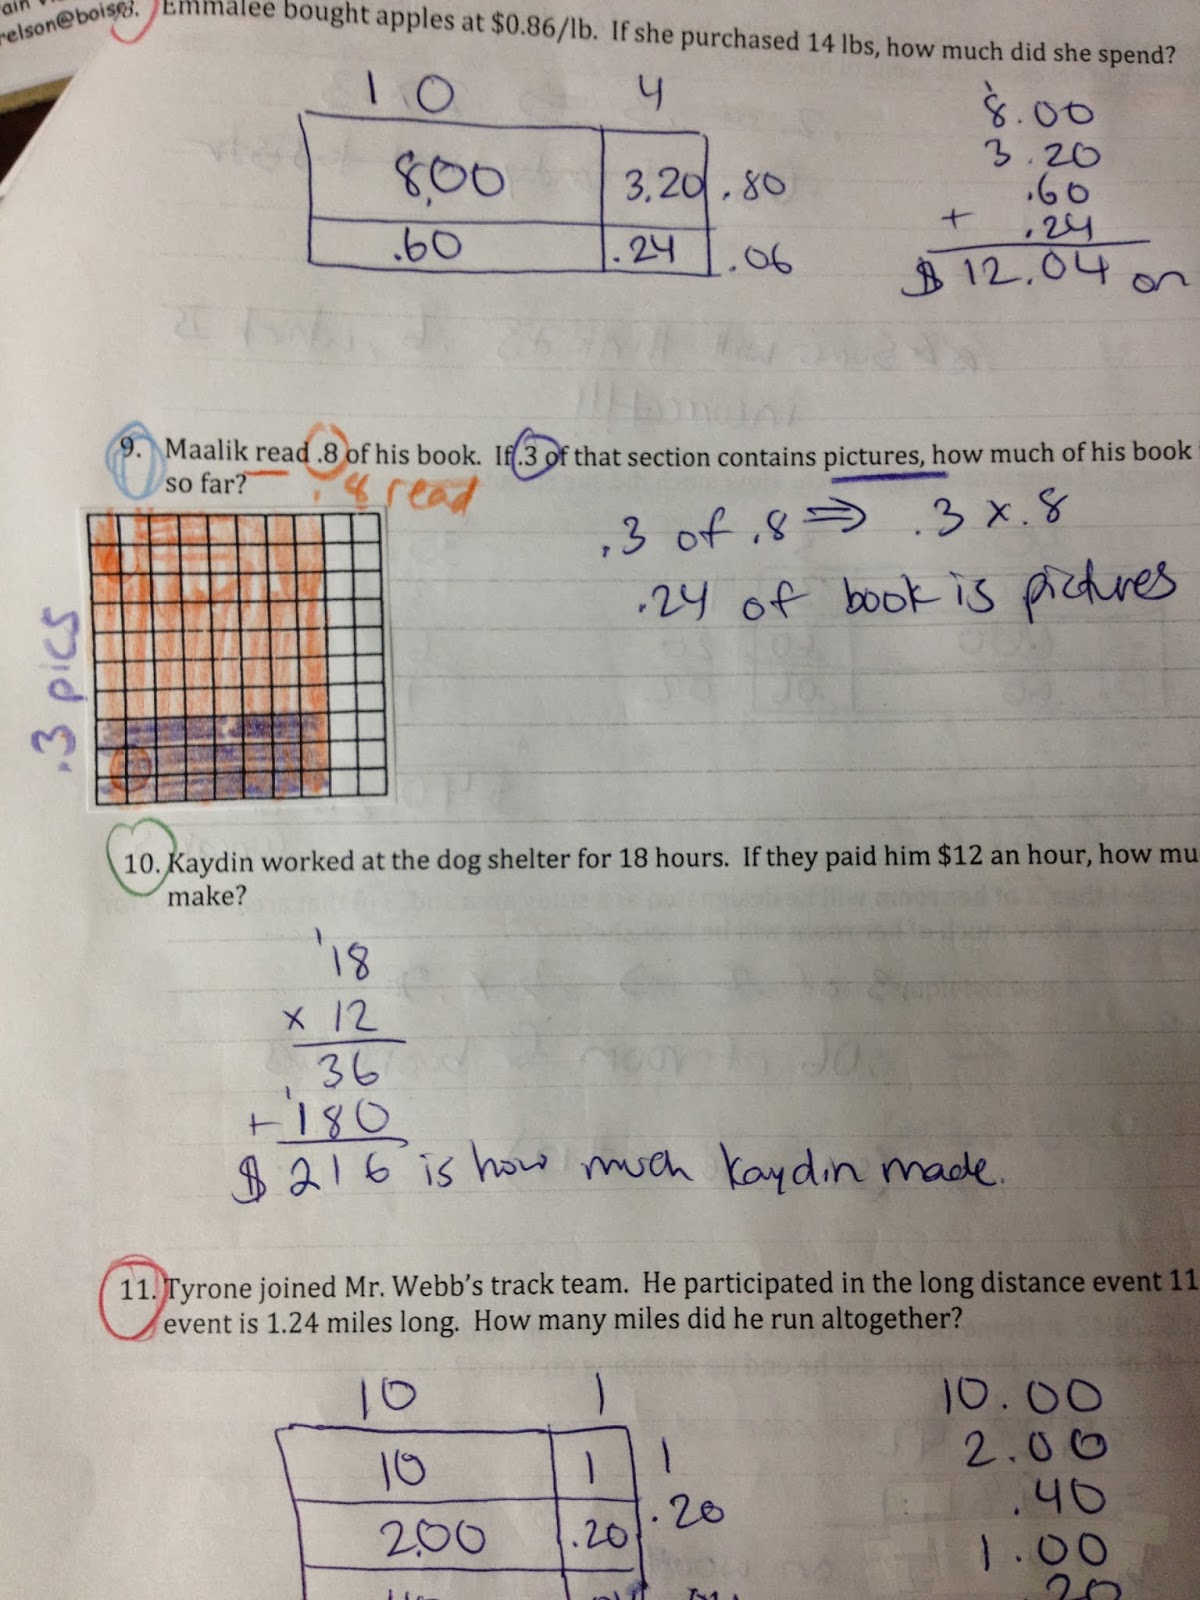 relson@boise
8. Emmalee bought apples at $0.86/lb. If she purchased 14 lbs, how much did she spend?
10 4
8.00 3.20 .80
.60 .24 .06
1
8.00
3.20
.60
+ .24
$12.04 on
9. Maalik read .8 of his book. If .3 of that section contains pictures, how much of his book
so far?
.8 read
.3 pics
.3 of .8 ⇒ .3 x .8
.24 of book is pictures
10. Kaydin worked at the dog shelter for 18 hours. If they paid him $12 an hour, how mu
make?
1
18
x 12
36
1
+ 180
$216 is how much Kaydin made.
11. Tyrone joined Mr. Webb's track team. He participated in the long distance event 11
event is 1.24 miles long. How many miles did he run altogether?
10 1
10 1 1
2.00 .20 .20
10.00
2.00
.40
1.00
.20